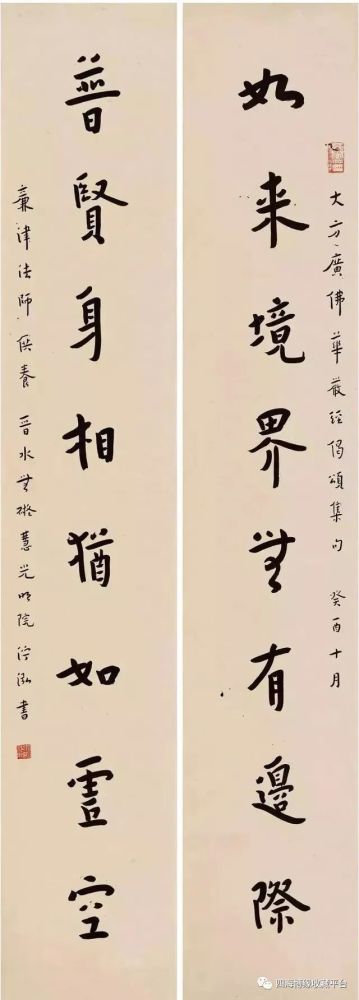 大方廣佛華嚴經偈頌集句 癸酉十月
如来境界無有邊際
普賢身相猶如虛空
津法師供養 晉水無礙慧光明院 泓書
四海博緣收藏平台